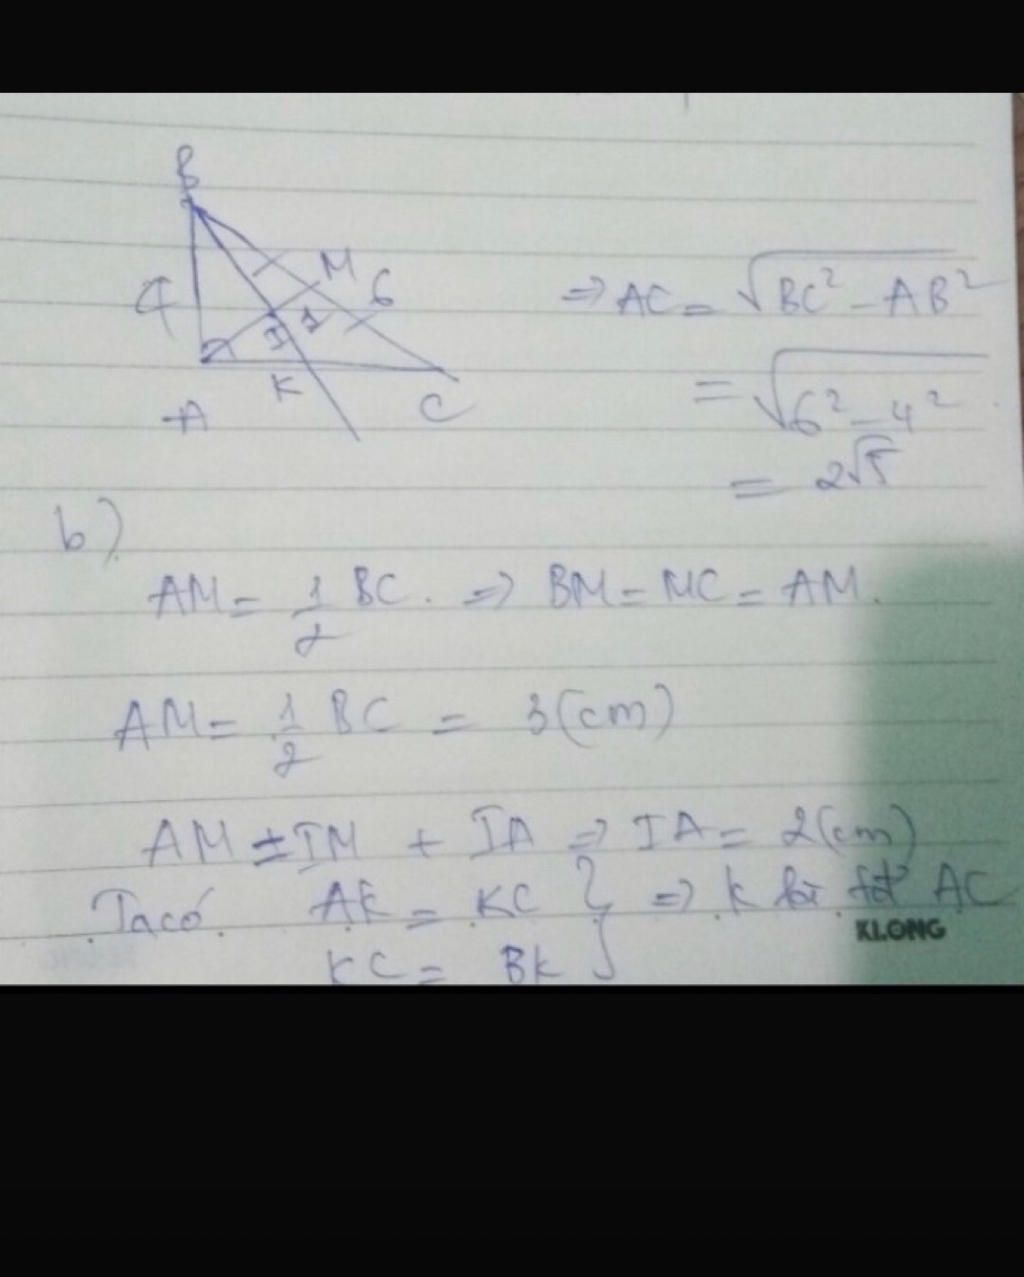 B
4
M
6
I 1
K
A
C
⇒ AC = √(BC² - AB²)
= √(6² - 4²)
= 2√5
b)
AM = 1/2 BC. ⇒ BM = MC = AM.
AM = 1/2 BC = 3 (cm)
AM = IM + IA ⇒ IA = 2 (cm)
Ta có AK = KC } ⇒ K là AC
KC = BK
KLONG